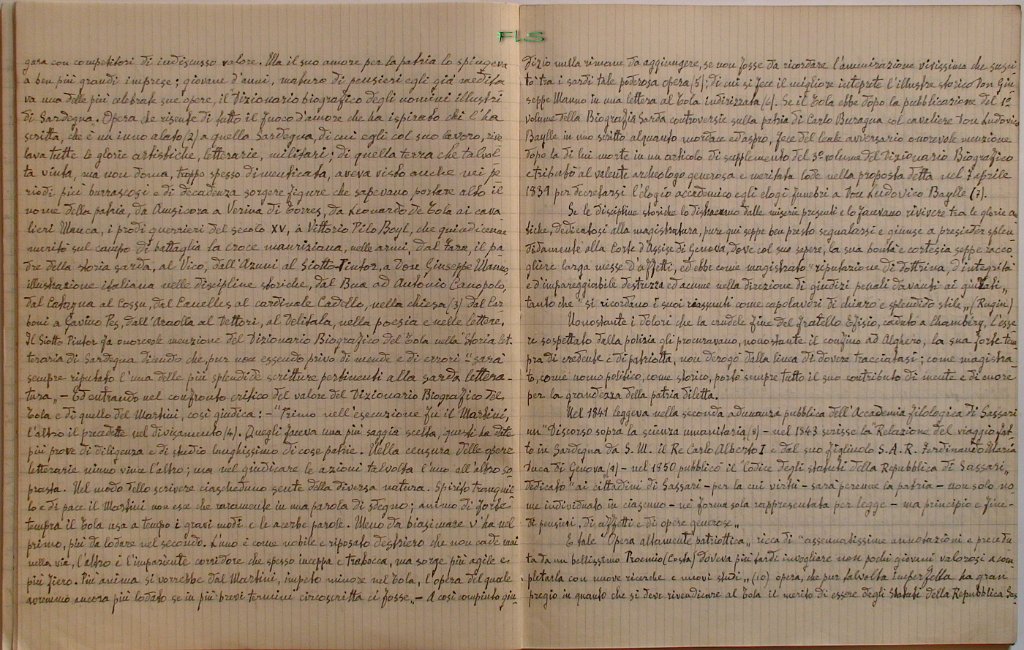 FLS
gara con competitori di indiscusso valore. Ma il suo amore per la patria lo spingeva
a ben più grandi imprese; giovane d'anni, maturo di pensieri egli già medita
va una delle più celebrate sue opere, il Dizionario biografico degli uomini illustri
di Sardegna. Opera che risente di tutto il fuoco d'amore che ha ispirato chi l'ha
scritta, che è un inno alato (2) a quella Sardegna, di cui egli col suo lavoro, rive
lava tutte le glorie artistiche, letterarie, militari; di quella terra che talvol
ta vinta, ma non doma, troppo spesso dimenticata, aveva visto anche nei pe
riodi più burrascosi e di decadenza sorgere figure che sapevano portare alto il
nome della patria, da Amsicora a Verina di Torres, da Leonardo de Tola ai cava
lieri Manca, i prodi guerrieri del secolo XV, a Vittorio Pilo Boyl, che quindicenne
meritò sul campo di battaglia la croce mauriziana, nelle armi, dal Fara, il pa
dre della storia sarda, al Vico, dall'Azuni al Siotto Pintor, a Don Giuseppe Manno,
illustrazione italiana nelle discipline storiche, dal Bua ad Antonio Canopolo,
dal Cotogna al Cossu, dal Canelles al cardinale Cadello, nella chiesa (3) dal Car
boni a Gavino Pes, dall'Araolla al Vettori, al Delitala, nella poesia e nelle lettere.
Il Siotto Pintor fa onorevole menzione del Dizionario Biografico del Tola nella Storia let
teraria di Sardegna dicendo che, pur non essendo privo di mende e di errori "sarà
sempre riputato l'una delle più splendide scritture pertinenti alla sarda lettera-
tura„ – Ed entrando nel confronto critico del valore del Dizionario Biografico del
Tola e di quello del Martini, così giudica: – "Primo nell'esecuzione fu il Martini,
l'altro il precedette nel divisamento (4). Quegli faceva una più saggia scelta, questi ha date
più prove di diligenza e di studio lunghissimo di cose patrie. Nella censura delle opere
letterarie niuno vince l'altro; ma nel giudicare le azioni talvolta l'uno all'altro so
prasta. Nel modo dello scrivere ciascheduno sente della diversa natura. Spirito tranquil
lo e di pace il Martini non esce che raramente in una parola di sdegno; animo di forte
tempra il Tola usa a tempo i gravi modi e le acerbe parole. Meno da biasimare v'ha nel
primo, più da lodare nel secondo. L'uno è come nobile e riposato destriero che non cade mai
nella via, l'altro è l'impaziente corridore che spesso inceppa e trabocca, ma sorge più agile e
più fiero. Più anima si vorrebbe dal Martini, impeto minore nel Tola, l'opera del quale
avremmo ancora più lodato se in più brevi termini circoscritta ci fosse„ – A così compiuto giu
dizio nulla rimane da aggiungere, se non fosse da ricordare l'ammirazione vivissima che susci
tò tra i sardi tale poderosa opera (5); di cui si fece il migliore interprete l'illustre storico Don Giu
seppe Manno in una lettera al Tola indirizzata (6). Se il Tola ebbe dopo la pubblicazione del 1°
volume della Biografia Sarda controversie sulla patria di Carlo Buragna col cavaliere Don Ludovico
Baylle in uno scritto alquanto mordace ed aspro, fece del leale avversario onorevole menzione
dopo la di lui morte in un articolo di supplemento del 3° volume del Dizionario Biografico
e tributò al valente archeologo generosa e meritata lode nella proposta detta nel 1 aprile
1839 per decretarsi l'elogio accademico egli elogi funebri a Don Ludovico Baylle (7).
Se le discipline storiche lo distraevano dalle miserie presenti e lo facevano rivivere tra le glorie an
tiche, dedicatosi alla magistratura, pure qui seppe ben presto segnalarsi e giunse a presieder splen
didamente alla Corte d'Assise di Genova, dove col suo sapere, la sua bontà e cortesia seppe racco
gliere larga messe d'affetti, ed ebbe come magistrato "riputazione di dottrina, d'integrità
e d'impareggiabile destrezza ed acume nella direzione di giudizi penali davanti ai giurati,
tanto che "si ricordano i suoi riassunti come capolavori di chiaro e splendido stile„ (Rugiu)
Nonostante i dolori che la crudele fine del fratello Efisio, caduto a Chambéry, l'esse
re sospettato dalla polizia gli procuravano, nonostante il confino ad Alghero, la sua forte tem
pra di credente e di patriotta, non derogò dalla linea di dovere tracciatasi; come magistra
to, come uomo politico, come storico, portò sempre tutto il suo contributo di mente e di cuore
per la grandezza della patria diletta.
Nel 1841 leggeva nella seconda adunanza pubblica dell'Accademia filologica di Sassari
un "Discorso sopra la scienza umanitaria (8) – nel 1843 scrisse la Relazione del viaggio fat
to in Sardegna da S. M. il Re Carlo Alberto I e dal suo figliuolo S.A.R. Ferdinando Maria
Duca di Genova (9) – nel 1850 pubblicò il "Codice degli statuti della Repubblica di Sassari„
dedicato "ai cittadini di Sassari – per la cui virtù – sarà perenne la patria – non solo no
me individuato in ciascuno – né forma sola rappresentata per legge – ma principio e fine –
di pensieri, di affetti e di opere generose„
E tale "Opera altamente patriottica„ ricca di "assennatissime annotazioni e precedu
ta da un bellissimo Proemio (Costa) doveva più tardi invogliare non pochi giovani valorosi a com
pletarla con nuove ricerche e nuovi studi„ (10) opera, che pur talvolta imperfetta ha gran
pregio in quanto che si deve rivendicare al Tola il merito di essere degli Statuti della Repubblica Sas